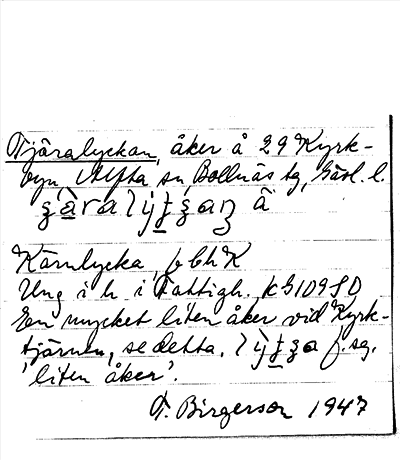 Tjäralyckan, åker å 29 Kyrk-
byn, Alfta sn, Bollnäs tg, Gävl. l.
Kärnlycka
Ung i h. i Fattigh.
En mycket liten åker vid Kyrk-
tjärnen, se detta. f. sg.
'liten åker'.
T. Birgerson 1947